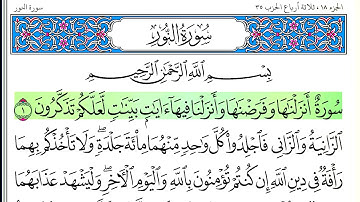 الجزء ١٨، ثلاثة أرباع الحزب ٣٥
سورة النور
سُورَةُ النُّورِ
بِسْمِ اللَّهِ الرَّحْمَٰنِ الرَّحِيمِ
سُورَةٌ أَنزَلْنَٰهَا وَفَرَضْنَٰهَا وَأَنزَلْنَا فِيهَآ ءَايَٰتِۭ بَيِّنَٰتٍ لَّعَلَّكُمْ تَذَكَّرُونَ ۝١
الزَّانِيَةُ وَالزَّانِى فَاجْلِدُوا۟ كُلَّ وَٰحِدٍ مِّنْهُمَا مِا۟ئَةَ جَلْدَةٍ ۖ وَلَا تَأْخُذْكُم بِهِمَا
رَأْفَةٌ فِى دِينِ اللَّهِ إِن كُنتُمْ تُؤْمِنُونَ بِاللَّهِ وَالْيَوْمِ الْءَاخِرِ ۖ وَلْيَشْهَدْ عَذَابَهُمَا